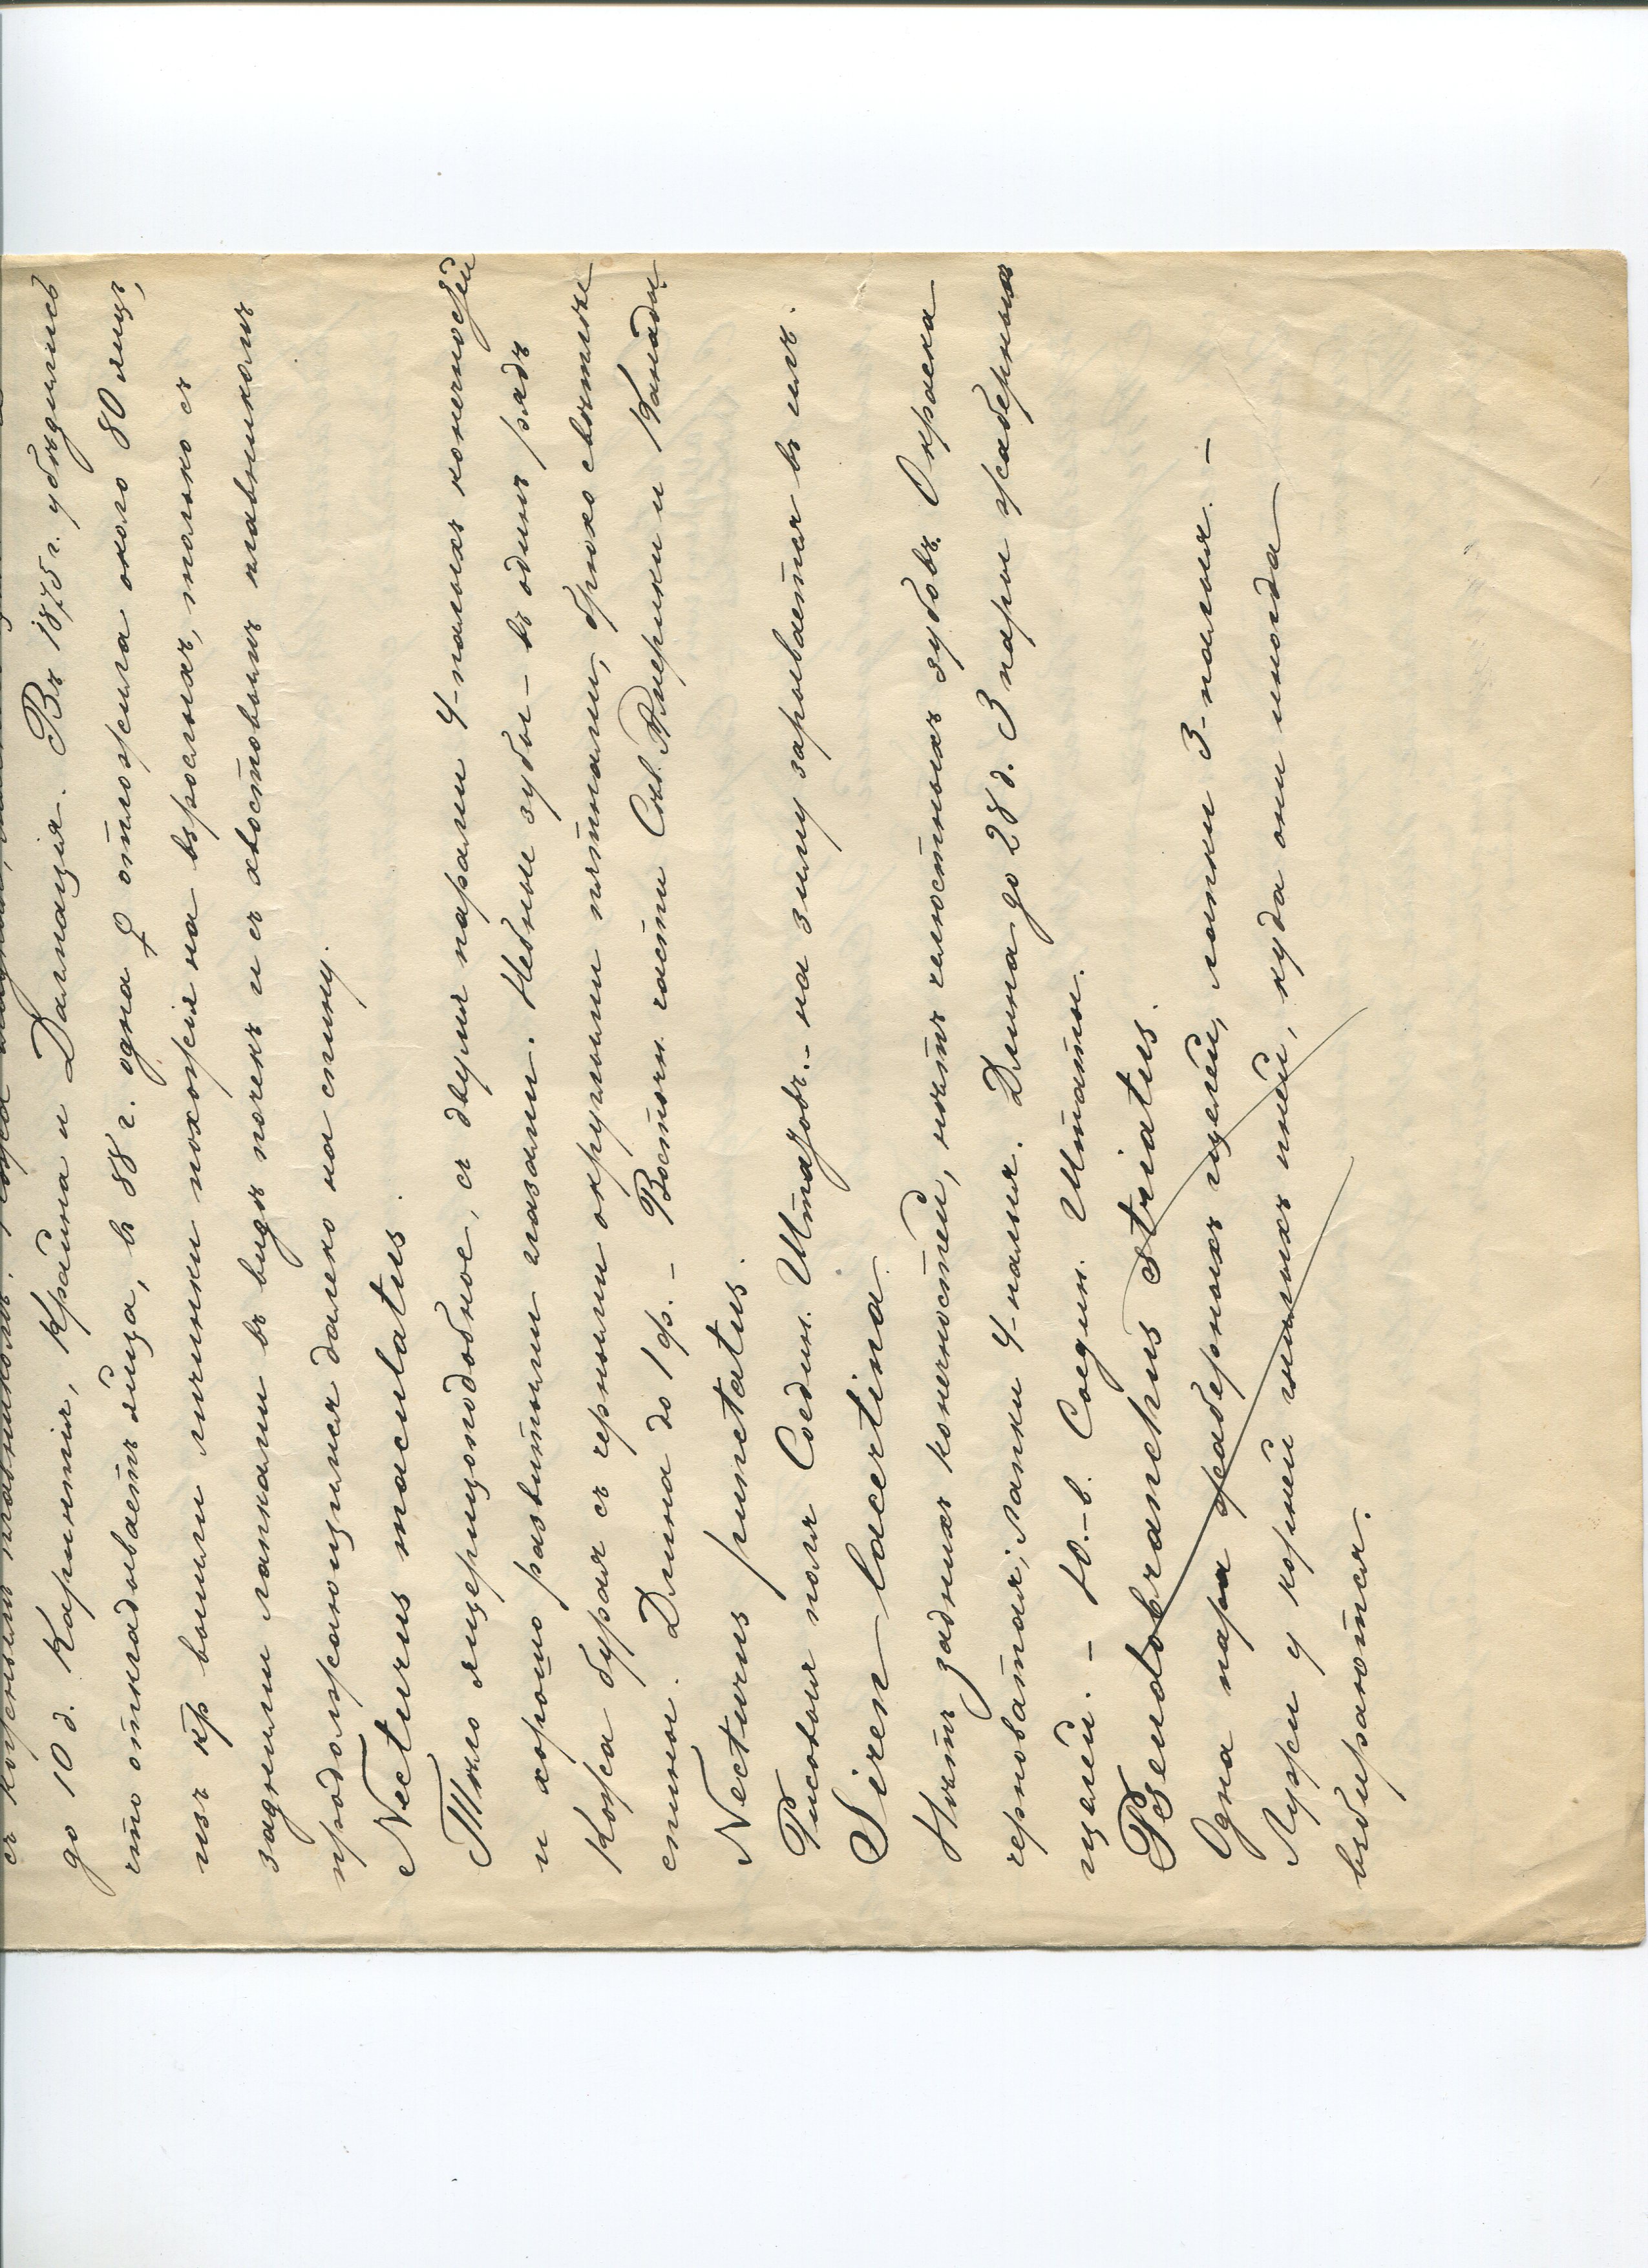 съ кожнымъ плавникомъ.
до 10 д. Каринтія, Крайна и Далмація. Въ 1875 г. убѣдились
что откладываетъ яйца, въ 88 г. одна ♀ отложила около 80 яицъ,
изъ кр вышли личинки похожія на взрослыхъ, только съ
задними лапками въ видѣ почекъ и съ хвостовымъ плавникомъ
продолжающимся далеко на спину.
Necturus maculatus.
Тѣло ящероподобное, съ двумя парами 4-палыхъ конечностей
и хорошо развитыми глазами. Небные зубы – въ одинъ рядъ
Кожа бурая съ черными округлыми пятнами, брюхо свѣтлѣе
спины. Длина до 1 ф. – Восточн. части Сѣв. Америки и Канады
Necturus punctatus.
Рисовыя поля Соедин. Штатовъ. – на зиму зарывается въ илъ.
Siren lacertina
Нѣтъ заднихъ конечностей, нѣтъ челюстныхъ зубовъ. Окраска
черноватая; лапки 4-палыя. Длина до 28 д. 3 пары жаберныхъ
щелей. – Ю.-в. Соедин. Штаты.
Pseudobranchus striatus.
Одна пара жаберныхъ щелей, лапки 3-палыя. –
Лужи у корней пней, куда они иногда
взбираются.